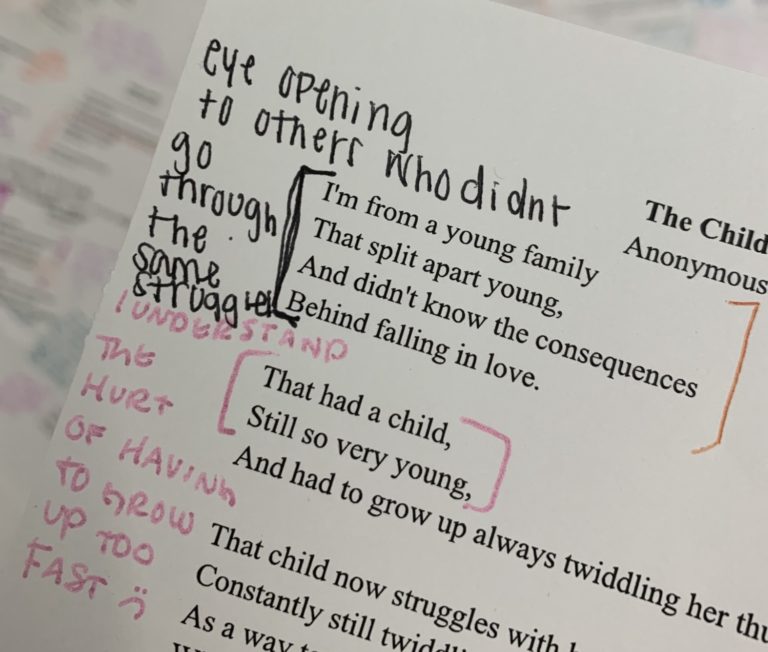 eye opening
to others who didnt
go
through
the
same
struggles
I UNDERSTAND
THE
HURT
OF HAVING
TO GROW
UP TOO
FAST :(
The Child
Anonymous
I'm from a young family
That split apart young,
And didn't know the consequences
Behind falling in love.
That had a child,
Still so very young,
And had to grow up always twiddling her thu
That child now struggles with
Constantly still twiddl
As a way to